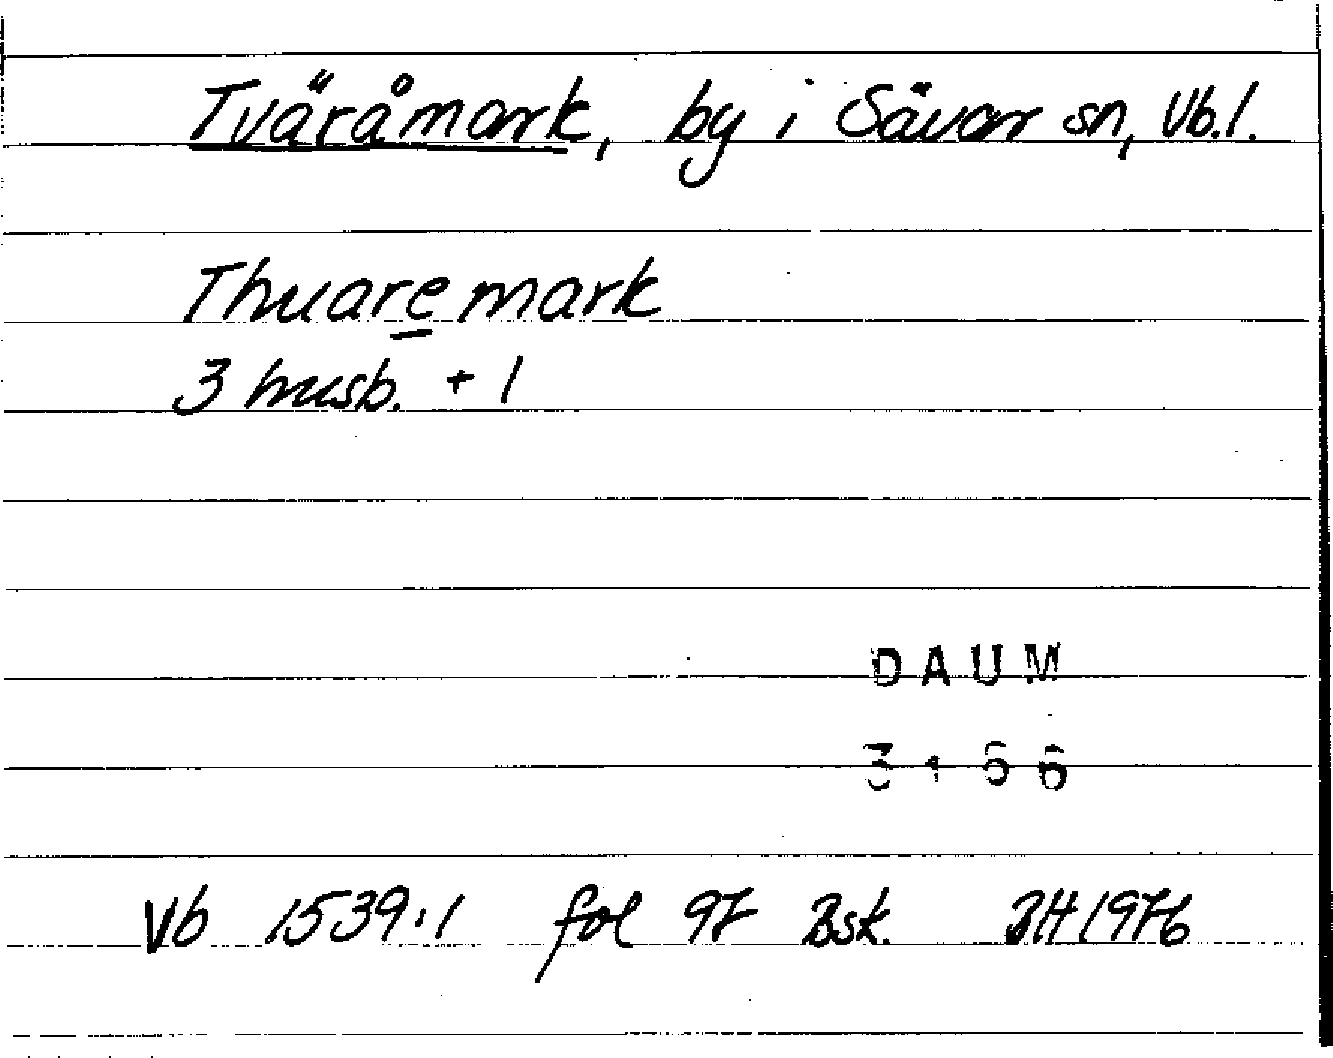 Tväråmark, by i Sävar sn, Vb.l.
Thuaremark
3 husb. + 1
DAUM
3156
Vb 1539:1 fol 97 Bsk. BH 1976